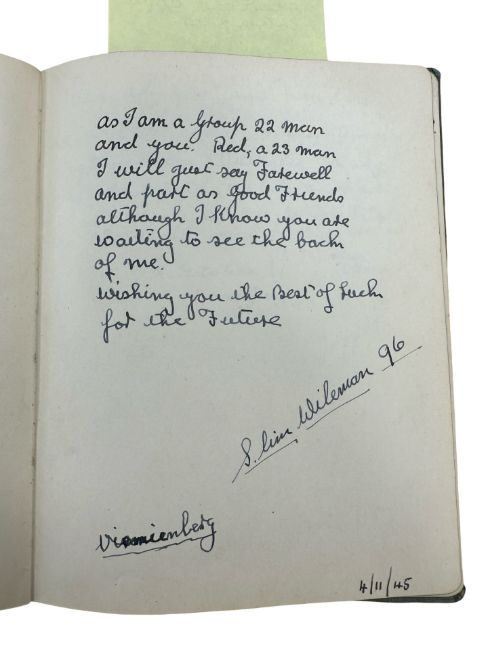 as I am a Group 22 man
and you. Red, a 23 man
I will just say Farewell
and part as good Friends
although I know you are
waiting to see the back
of me.
Wishing you the Best of Luck
for the Future
Slim Wileman 96
4/11/45